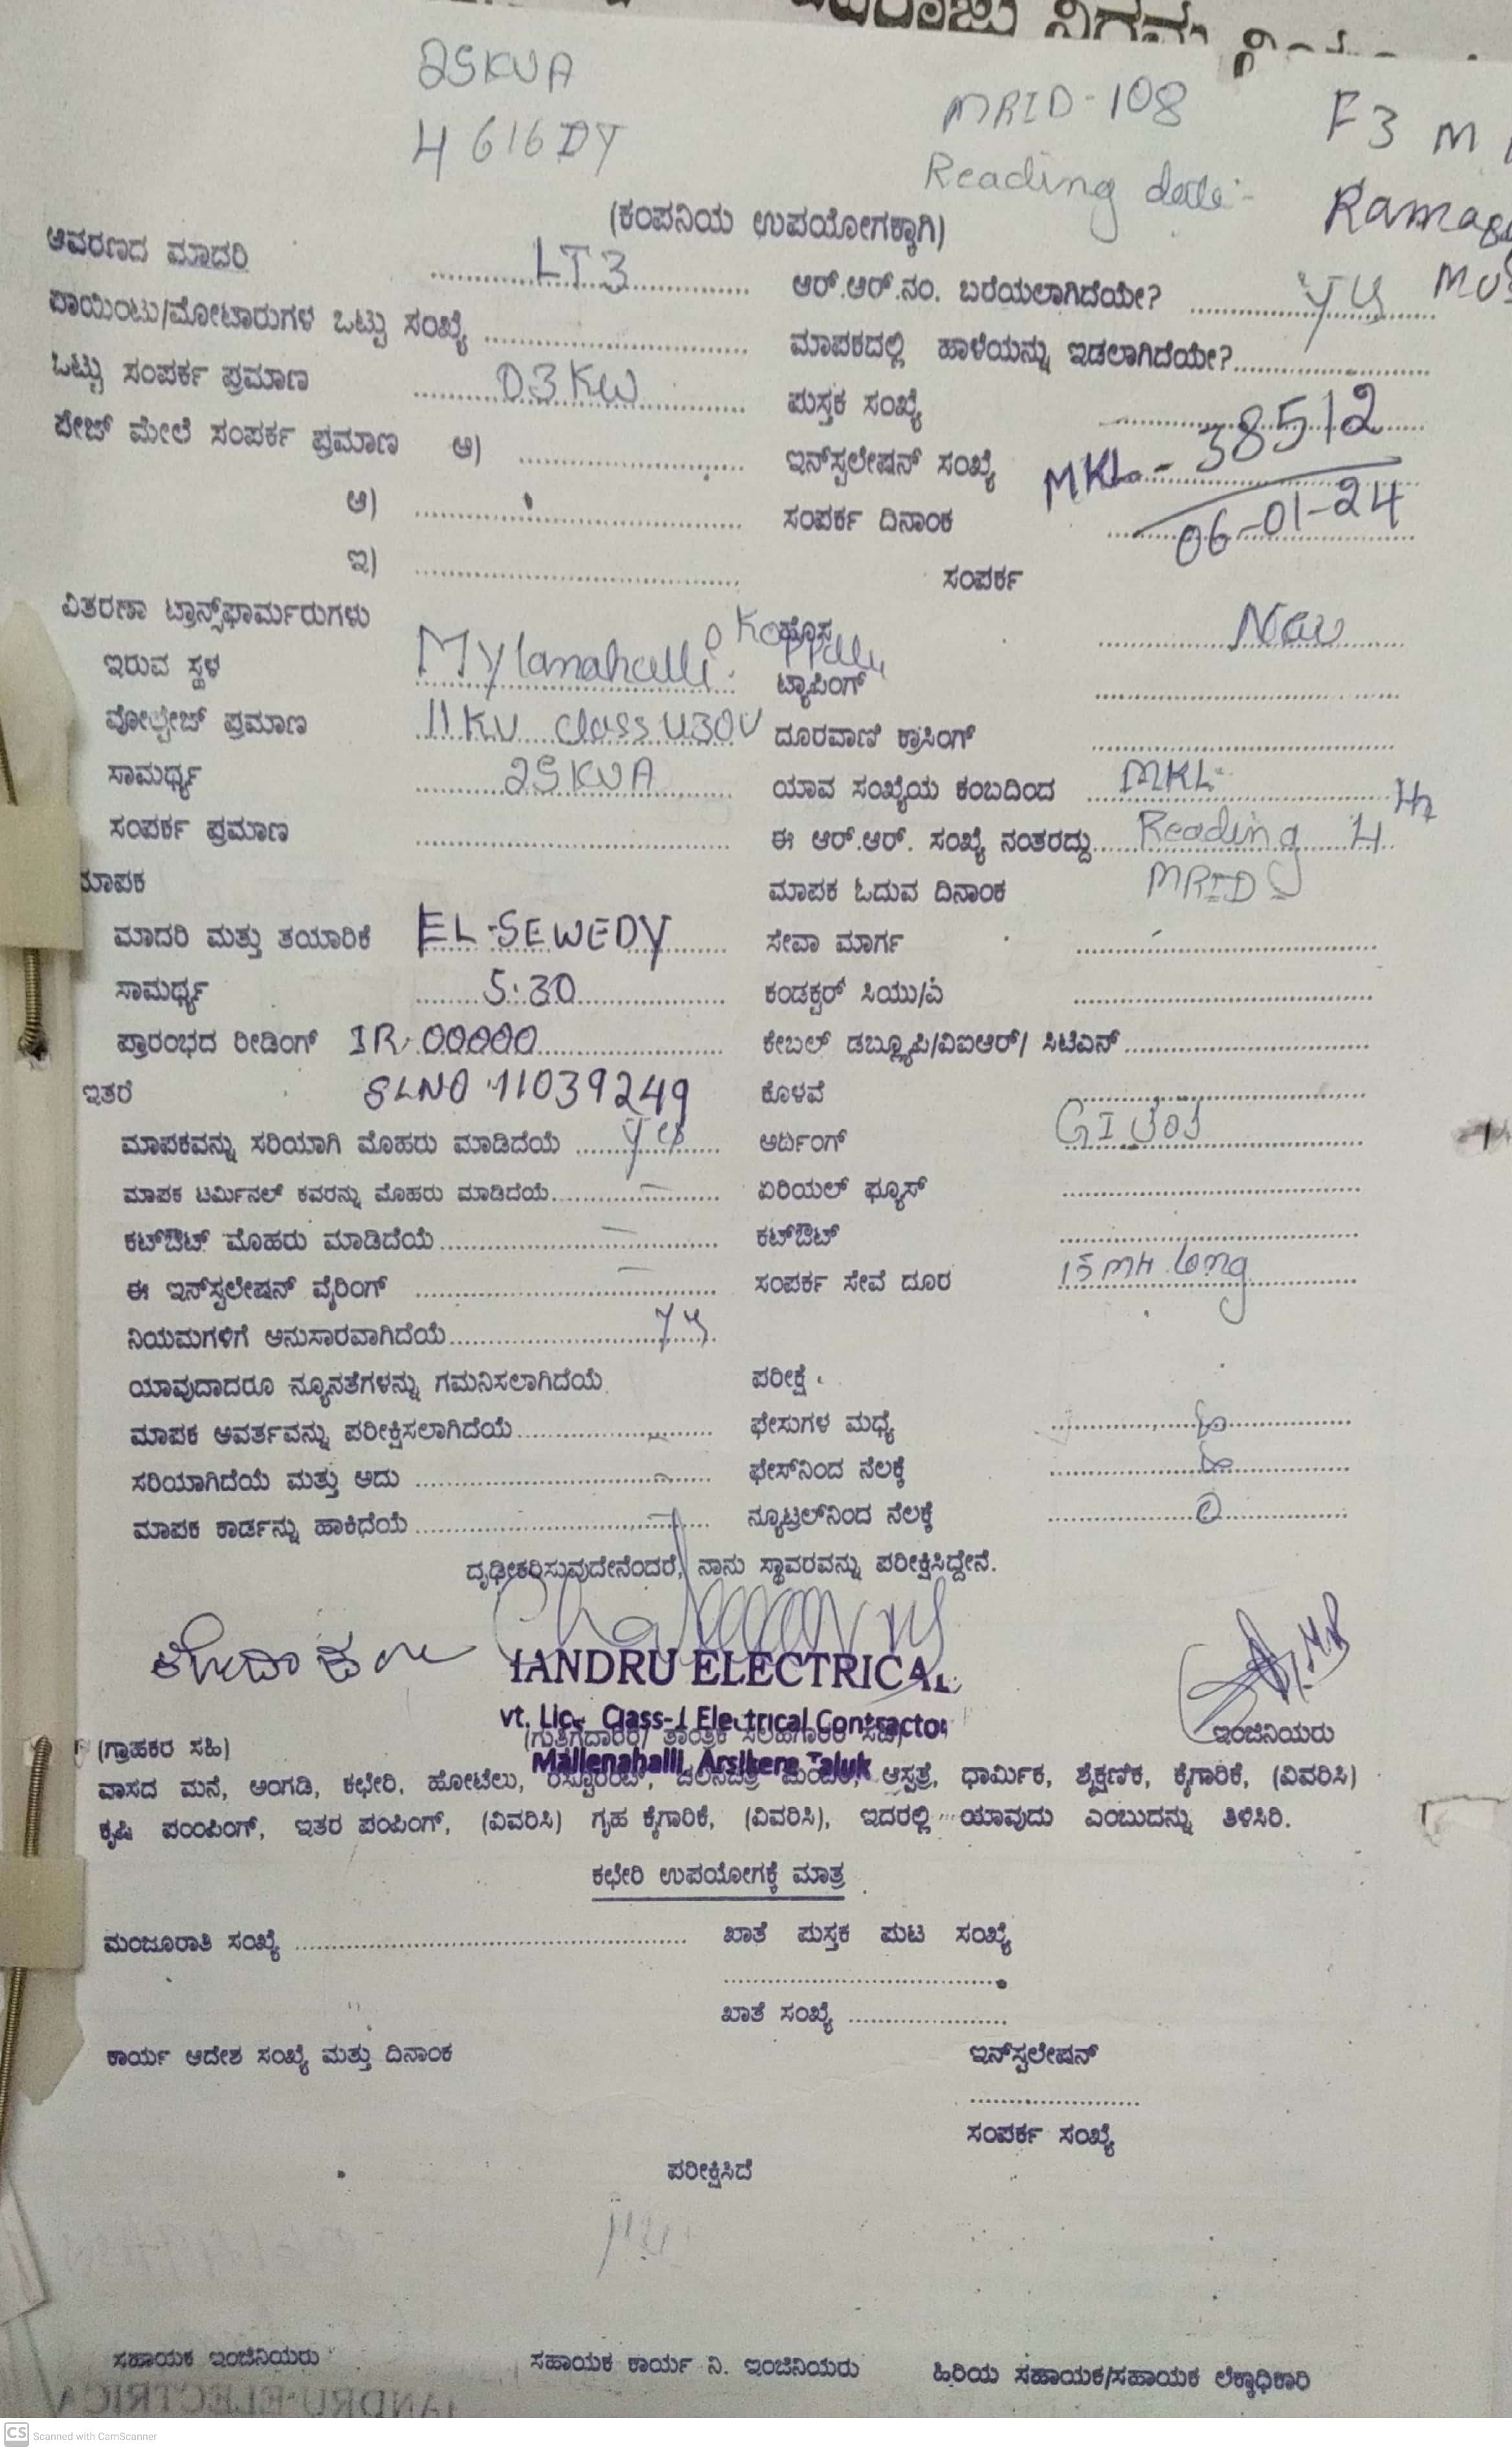 25KVA
4616DY
MRID-108
Reading date:-
F3 M
(ಕಂಪನಿಯ ಉಪಯೋಗಕ್ಕಾಗಿ)
ಆವರಣದ ಮಾದರಿ LT3 ಆರ್.ಆರ್.ನಂ. ಬರೆಯಲಾಗಿದೆಯೇ?
ಪಾಯಿಂಟು/ಮೋಟಾರುಗಳ ಒಟ್ಟು ಸಂಖ್ಯೆ ಮಾಪಕದಲ್ಲಿ ಹಾಳೆಯನ್ನು ಇಡಲಾಗಿದೆಯೇ?
ಒಟ್ಟು ಸಂಪರ್ಕ ಪ್ರಮಾಣ 03KW ಪುಸ್ತಕ ಸಂಖ್ಯೆ
ಪೇಜ್ ಮೇಲೆ ಸಂಪರ್ಕ ಪ್ರಮಾಣ ಅ) ಇನ್‌ಸ್ಟಲೇಷನ್ ಸಂಖ್ಯೆ MKL - 38512
ಆ) ಸಂಪರ್ಕ ದಿನಾಂಕ 06-01-24
ಇ) ಸಂಪರ್ಕ
ವಿತರಣಾ ಟ್ರಾನ್ಸ್‌ಫಾರ್ಮರುಗಳು ಹೊಸ New
ಇರುವ ಸ್ಥಳ Mylanahalli ಟ್ಯಾಪಿಂಗ್
ವೋಲ್ಟೇಜ್ ಪ್ರಮಾಣ 11KV class 430V ದೂರವಾಣಿ ಕ್ರಾಸಿಂಗ್
ಸಾಮರ್ಥ್ಯ 25KVA ಯಾವ ಸಂಖ್ಯೆಯ ಕಂಬದಿಂದ MKL
ಸಂಪರ್ಕ ಪ್ರಮಾಣ ಈ ಆರ್.ಆರ್. ಸಂಖ್ಯೆ ನಂತರದ್ದು Reading
ಮಾಪಕ ಮಾಪಕ ಓದುವ ದಿನಾಂಕ MRID
ಮಾದರಿ ಮತ್ತು ತಯಾರಿಕೆ EL-SEWEDY ಸೇವಾ ಮಾರ್ಗ
ಸಾಮರ್ಥ್ಯ 5-30 ಕಂಡಕ್ಟರ್ ಸಿಯು/ಎ
ಪ್ರಾರಂಭದ ರೀಡಿಂಗ್ IR 00000 ಕೇಬಲ್ ಡಬ್ಲ್ಯೂಪಿ/ವಿಐಆರ್/ ಸಿಟಿಎಸ್
ಇತರೆ SLNO 11039249 ಕೊಳವೆ
ಮಾಪಕವನ್ನು ಸರಿಯಾಗಿ ಮೊಹರು ಮಾಡಿದೆಯೆ Yes ಅರ್ದಿಂಗ್ GI
ಮಾಪಕ ಟರ್ಮಿನಲ್ ಕವರನ್ನು ಮೊಹರು ಮಾಡಿದೆಯೆ ಏರಿಯಲ್ ಫ್ಯೂಸ್
ಕಟ್‌ಔಟ್ ಮೊಹರು ಮಾಡಿದೆಯೆ ಕಟ್‌ಔಟ್
ಈ ಇನ್‌ಸ್ಟಲೇಷನ್ ವೈರಿಂಗ್ ಸಂಪರ್ಕ ಸೇವೆ ದೂರ 15 long
ನಿಯಮಗಳಿಗೆ ಅನುಸಾರವಾಗಿದೆಯೆ
ಯಾವುದಾದರೂ ನ್ಯೂನತೆಗಳನ್ನು ಗಮನಿಸಲಾಗಿದೆಯೆ ಪರೀಕ್ಷೆ
ಮಾಪಕ ಆವರ್ತವನ್ನು ಪರೀಕ್ಷಿಸಲಾಗಿದೆಯೆ ಫೇಸುಗಳ ಮಧ್ಯೆ
ಸರಿಯಾಗಿದೆಯೆ ಮತ್ತು ಅದು ಫೇಸ್‌ನಿಂದ ನೆಲಕ್ಕೆ
ಮಾಪಕ ಕಾರ್ಡನ್ನು ಹಾಕಿಧೆಯೆ ನ್ಯೂಟ್ರಲ್‌ನಿಂದ ನೆಲಕ್ಕೆ
ದೃಢೀಕರಿಸುವುದೇನೆಂದರೆ, ನಾನು ಸ್ಥಾವರವನ್ನು ಪರೀಕ್ಷಿಸಿದ್ದೇನೆ.
HANDRU ELECTRICAL
vt. Lic- Class-I Electrical Contractor
Mallenahalli, Arsikere Taluk
(ಗ್ರಾಹಕರ ಸಹಿ) ಇಂಜಿನಿಯರು
ವಾಸದ ಮನೆ, ಅಂಗಡಿ, ಕಛೇರಿ, ಹೋಟೆಲು, ಆಸ್ಪತ್ರೆ, ಧಾರ್ಮಿಕ, ಶೈಕ್ಷಣಿಕ, ಕೈಗಾರಿಕೆ, (ವಿವರಿಸಿ)
ಕೃಷಿ ಪಂಂಪಿಂಗ್, ಇತರ ಪಂಪಿಂಗ್, (ವಿವರಿಸಿ) ಗೃಹ ಕೈಗಾರಿಕೆ, (ವಿವರಿಸಿ), ಇದರಲ್ಲಿ ಯಾವುದು ಎಂಬುದನ್ನು ತಿಳಿಸಿರಿ.
ಕಛೇರಿ ಉಪಯೋಗಕ್ಕೆ ಮಾತ್ರ
ಮಂಜೂರಾತಿ ಸಂಖ್ಯೆ ಖಾತೆ ಪುಸ್ತಕ ಪುಟ ಸಂಖ್ಯೆ
ಖಾತೆ ಸಂಖ್ಯೆ
ಕಾರ್ಯ ಆದೇಶ ಸಂಖ್ಯೆ ಮತ್ತು ದಿನಾಂಕ ಇನ್‌ಸ್ಟಲೇಷನ್
ಸಂಪರ್ಕ ಸಂಖ್ಯೆ
ಪರೀಕ್ಷಿಸಿದೆ
ಸಹಾಯಕ ಇಂಜಿನಿಯರು ಸಹಾಯಕ ಕಾರ್ಯ ನಿ. ಇಂಜಿನಿಯರು ಹಿರಿಯ ಸಹಾಯಕ/ಸಹಾಯಕ ಲೆಕ್ಕಾಧಿಕಾರಿ
CS Scanned with CamScanner